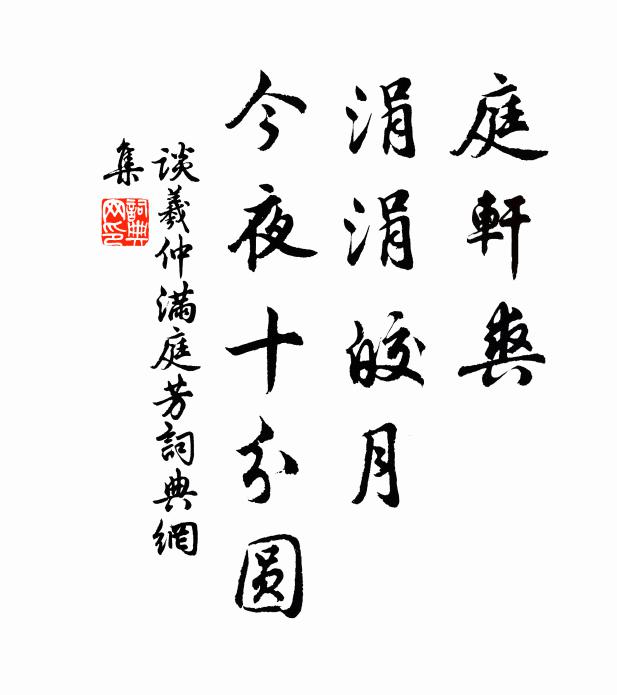 庭軒爽
涓涓皎月
今夜十分圆
談羲仲滿庭芳詞典網
集
詞典
网印